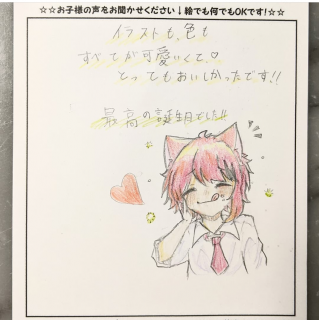 ☆☆お子様の声をお聞かせください↓絵でも何でもOKです!☆☆
イラストも、色も
すべてが可愛いくて、♡
とってもおいしかったです!!
最高の誕生日でした!!